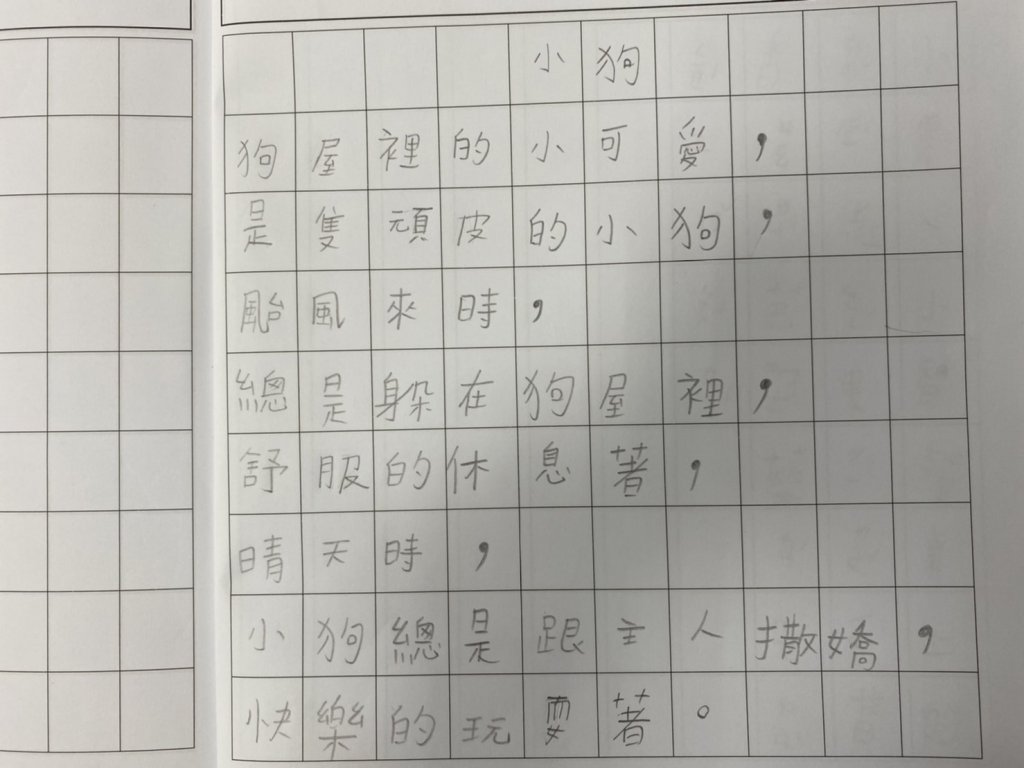 小狗
狗屋裡的小可愛，
是隻頑皮的小狗，
颱風來時，
總是躲在狗屋裡，
舒服的休息著，
晴天時，
小狗總是跟主人撒嬌，
快樂的玩耍著。